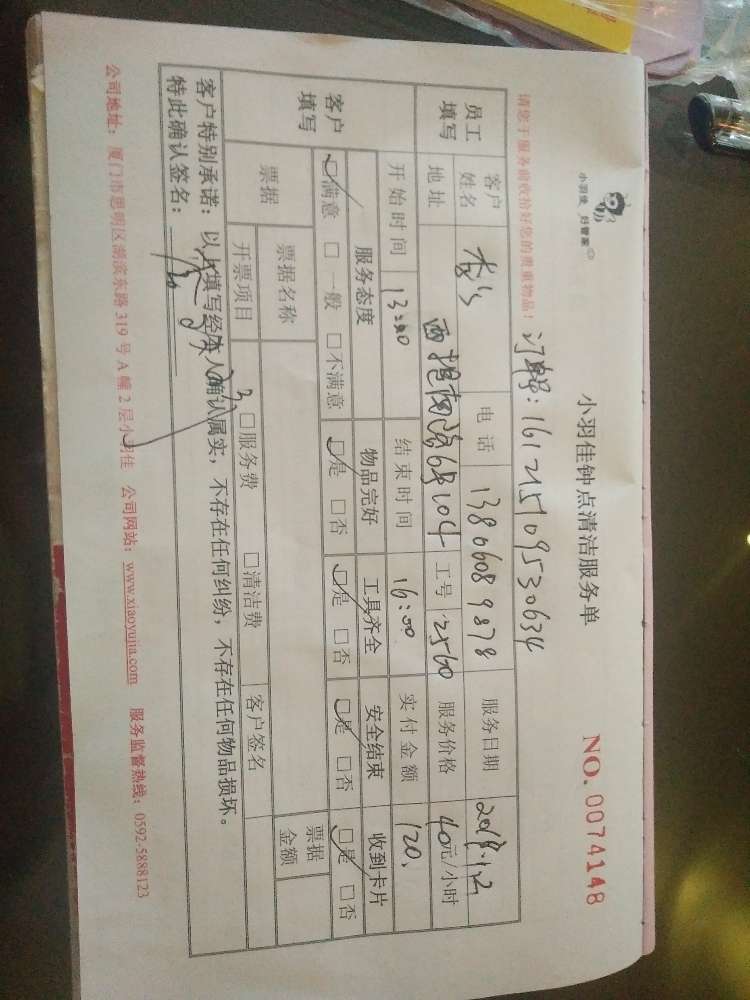 小羽佳 好管家
小羽佳钟点清洁服务单
NO. 0074148
请您于服务前收拾好您的贵重物品!
订单号: 161215109530634
员工填写
客户姓名 电话 13806089878 服务日期
地址 西堤南湾 104 工号 2560 服务价格 40元/小时
客户填写
开始时间 13:00 结束时间 16:00 实付金额 120.
服务态度 物品完好 工具齐全 安全结束 收到卡片
☑满意 □一般 □不满意 ☑是 □否 ☑是 □否 ☑是 □否 ☑是 □否
票据 票据名称 票据金额
开票项目 □服务费 □清洁费 客户签名
客户特别承诺: 以上填写经本人确认属实, 不存在任何纠纷, 不存在任何物品损坏。
特此确认签名:
公司地址: 厦门市思明区湖滨东路 319 号 A 幢 2 层小羽佳 公司网站: www.xiaoyujia.com 服务监督热线: 0592-5888123